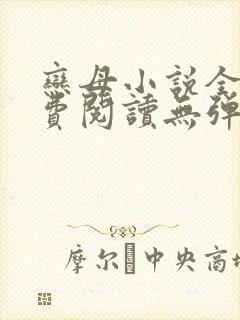 戀母小說全
費閱讀無彈
摩尔 中央商场